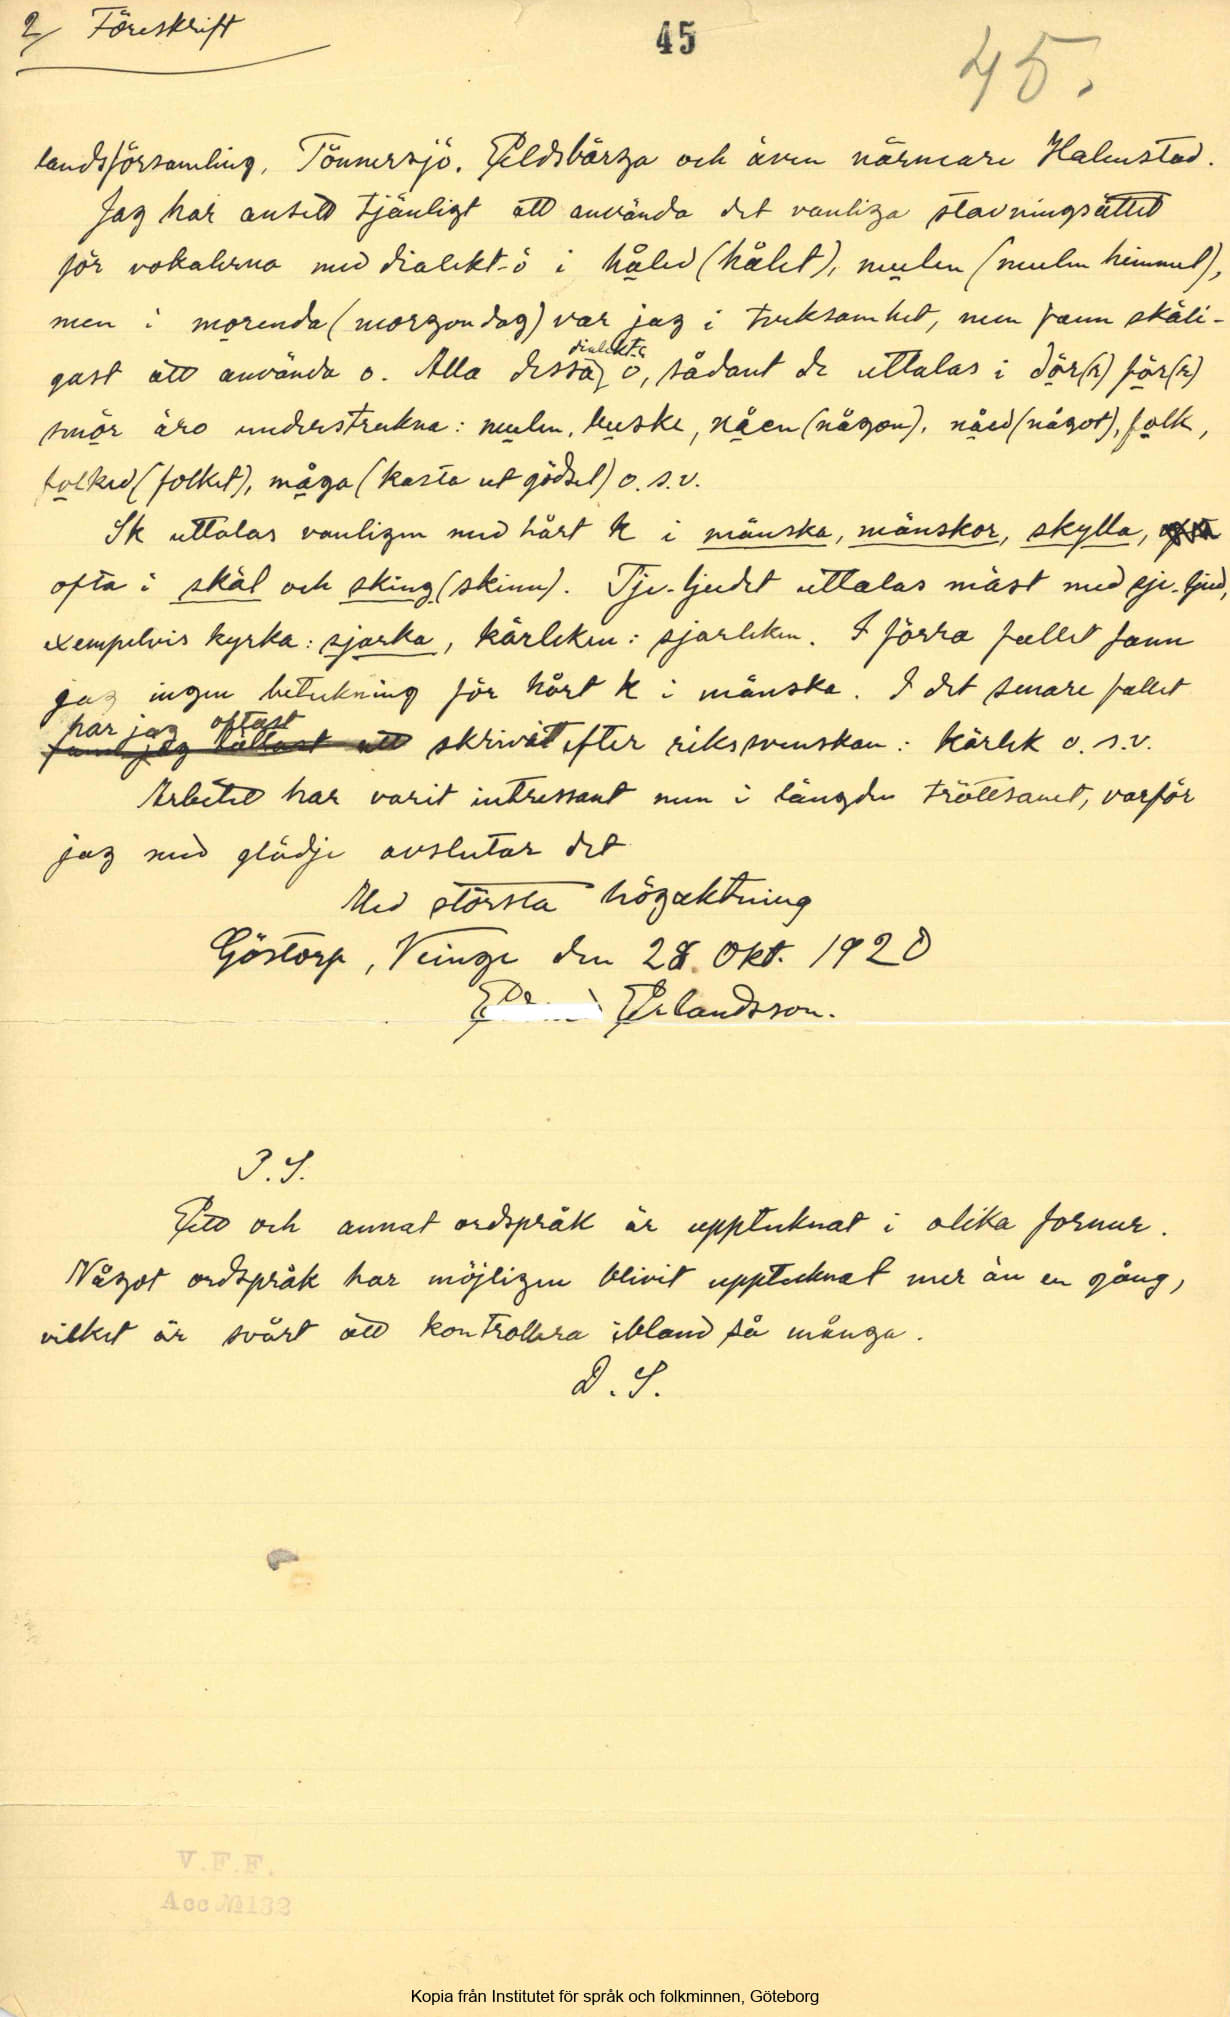 2/ Föreskrift
45
45.
landsförsamling, Tönnersjö, Eldsbärga och även närmare Halmstad.
Jag har ansett tjänligt att använda det vanliga stavningsättet
för vokalerna med dialekt-ö i håled (hålet), mulen (mulen himmel),
men i morenda (morgondag) var jag i tveksamhet, men fann skäli-
gast att använda o. Alla dessa dialekt-ö, sådant de uttalas i dör(r) för(r)
smör äro understrukna: mulen, buske, nåen (någon), nåed (något), folk,
folked (folket), måga (kasta ut gödsel) o.s.v.
Sk uttalas vanligen med hårt k i mänska, mänskor, skylla,
ofta i skäl och sking (skinn). Tje-ljudet uttalas mäst med sje-ljud,
exempelvis kyrka: sjarka, kärleken: sjarleken. I förra fallet fann
jag ingen beteckning för hårt k i mänska. I det senare fallet
har jag oftast skrivit efter riksvenskan: kärlek o.s.v.
Arbetet har varit intressant men i längden tröttsamt, varför
jag med glädje avslutar det
Med största högaktning
Göstorp, Veinge den 28. Okt. 1920
Erlandsson.
P.S.
Ett och annat ordspråk är upptecknat i olika former.
Något ordspråk har möjligen blivit upptecknat mer än en gång,
vilket är svårt att kontrollera ibland så många.
D.S.
V.F.F.
Acc №132
Kopia från Institutet för språk och folkminnen, Göteborg